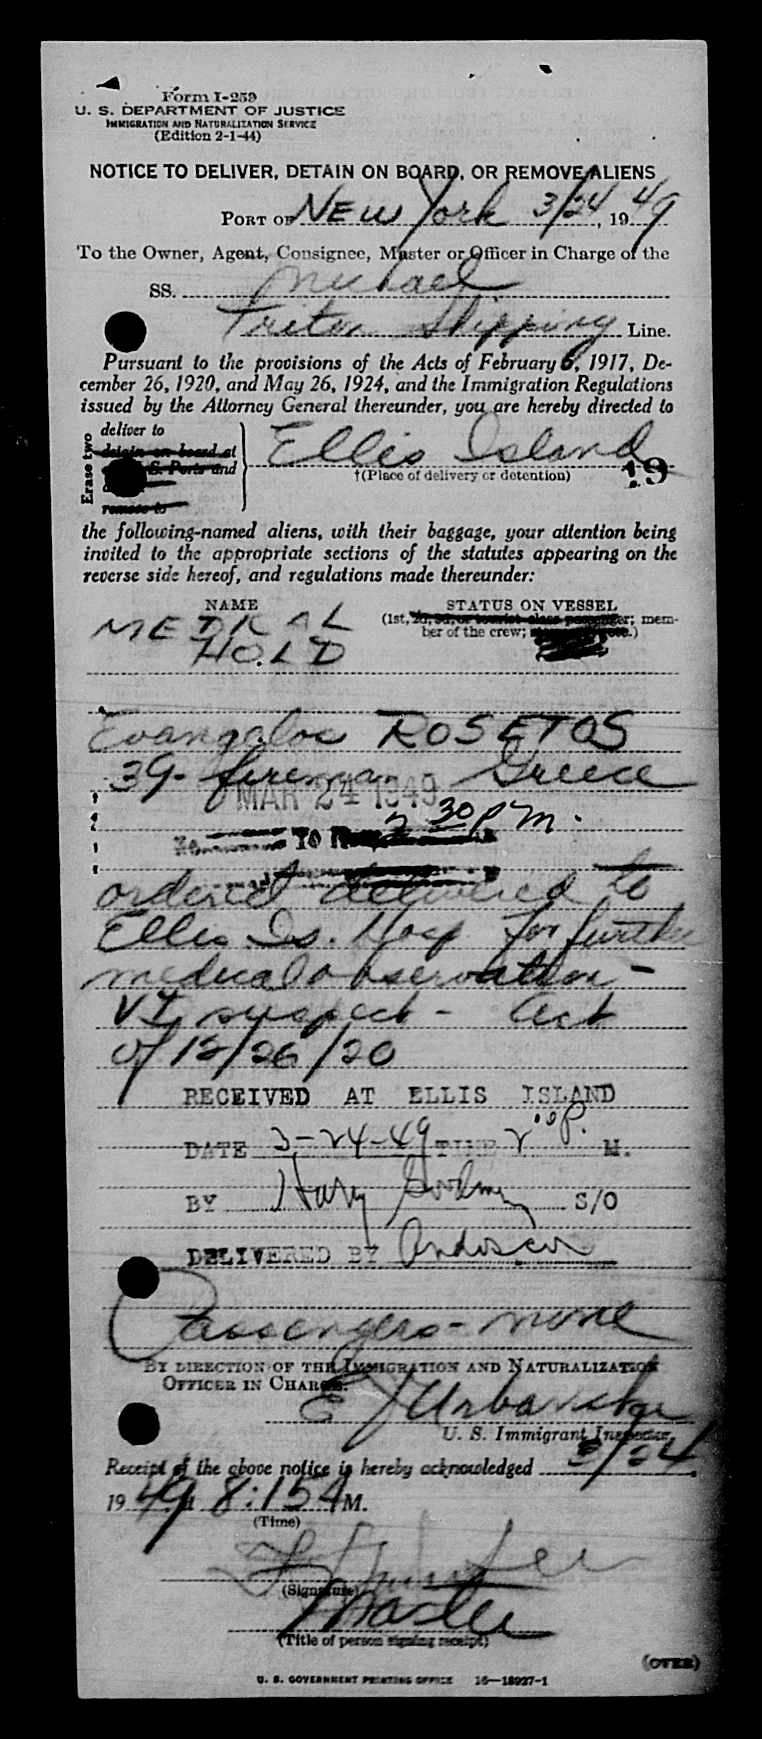 Form I-259
U. S. DEPARTMENT OF JUSTICE
IMMIGRATION AND NATURALIZATION SERVICE
(Edition 2-1-44)
NOTICE TO DELIVER, DETAIN ON BOARD, OR REMOVE ALIENS
PORT OF NEW York 3/24, 1949
To the Owner, Agent, Consignee, Master or Officer in Charge of the
SS. Michael
Triton Shipping Line.
Pursuant to the provisions of the Acts of February 5, 1917, De-
cember 26, 1920, and May 26, 1924, and the Immigration Regulations
issued by the Attorney General thereunder, you are hereby directed to
Erase two
deliver to
detain on board at
S. Ports and
remove to
Ellis Island
†(Place of delivery or detention)
19
the following-named aliens, with their baggage, your attention being
invited to the appropriate sections of the statutes appearing on the
reverse side hereof, and regulations made thereunder:
NAME STATUS ON VESSEL
MEDICAL HOLD
(1st, 2d, 3d, or tourist class passenger; mem-
ber of the crew;
Evangelos ROSETOS
39- fireman Greece
MAR 24 1949
2 30 PM.
TO
ordered delivered to
Ellis Is. Hosp for further
medical observation -
VD suspect - Act
of 12/26/20
RECEIVED AT ELLIS ISLAND
DATE 3-24-49 TIME 2 00 P. M.
BY Harry S/O
DELIVERED BY
Passengers - none
BY DIRECTION OF THE IMMIGRATION AND NATURALIZATION
OFFICER IN CHARGE.
E J Urbanske
U. S. Immigrant Inspector.
Receipt of the above notice is hereby acknowledged 3/24,
1949 8:15 A M.
(Time)
(Signature)
Master
(Title of person signing receipt)
(OVER)
U. S. GOVERNMENT PRINTING OFFICE 16—18927-1